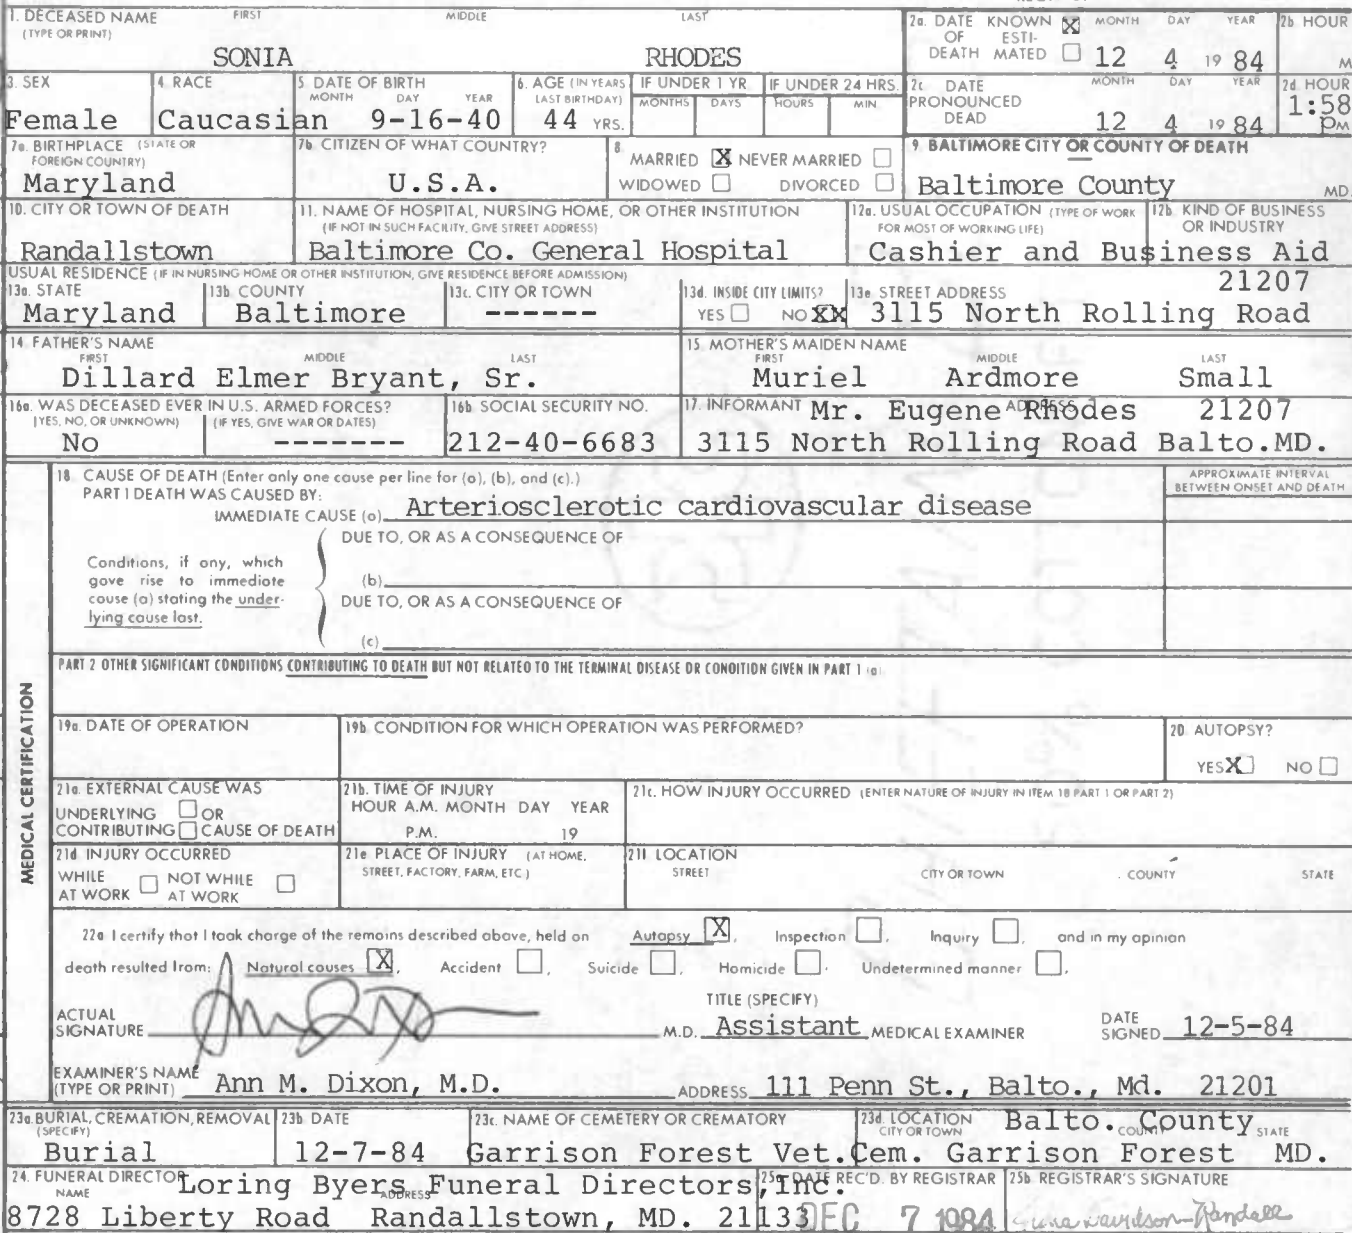 1. DECEASED NAME FIRST MIDDLE LAST
(TYPE OR PRINT)
SONIA RHODES
2a. DATE OF DEATH KNOWN X ESTIMATED MONTH DAY YEAR
12 4 1984
2b. HOUR
M
3. SEX
Female
4. RACE
Caucasian
5. DATE OF BIRTH
MONTH DAY YEAR
9-16-40
6. AGE (IN YEARS LAST BIRTHDAY)
44 YRS.
IF UNDER 1 YR.
MONTHS DAYS
IF UNDER 24 HRS.
HOURS MIN.
2c. DATE PRONOUNCED DEAD MONTH DAY YEAR
12 4 1984
2d. HOUR
1:58 PM
7a. BIRTHPLACE (STATE OR FOREIGN COUNTRY)
Maryland
7b. CITIZEN OF WHAT COUNTRY?
U.S.A.
8.
MARRIED X NEVER MARRIED
WIDOWED DIVORCED
9. BALTIMORE CITY OR COUNTY OF DEATH
Baltimore County MD.
10. CITY OR TOWN OF DEATH
Randallstown
11. NAME OF HOSPITAL, NURSING HOME, OR OTHER INSTITUTION
(IF NOT IN SUCH FACILITY, GIVE STREET ADDRESS)
Baltimore Co. General Hospital
12a. USUAL OCCUPATION (TYPE OF WORK FOR MOST OF WORKING LIFE)
12b. KIND OF BUSINESS OR INDUSTRY
Cashier and Business Aid
USUAL RESIDENCE (IF IN NURSING HOME OR OTHER INSTITUTION, GIVE RESIDENCE BEFORE ADMISSION)
13a. STATE
Maryland
13b. COUNTY
Baltimore
13c. CITY OR TOWN
------
13d. INSIDE CITY LIMITS?
YES NO XX
13e. STREET ADDRESS
21207
3115 North Rolling Road
14. FATHER'S NAME
FIRST MIDDLE LAST
Dillard Elmer Bryant, Sr.
15. MOTHER'S MAIDEN NAME
FIRST MIDDLE LAST
Muriel Ardmore Small
16a. WAS DECEASED EVER IN U.S. ARMED FORCES?
(YES, NO, OR UNKNOWN) (IF YES, GIVE WAR OR DATES)
No -------
16b. SOCIAL SECURITY NO.
212-40-6683
17. INFORMANT ADDRESS
Mr. Eugene Rhodes 21207
3115 North Rolling Road Balto.MD.
MEDICAL CERTIFICATION
18. CAUSE OF DEATH (Enter only one cause per line for (a), (b), and (c).)
PART I DEATH WAS CAUSED BY:
IMMEDIATE CAUSE (a) Arteriosclerotic cardiovascular disease
APPROXIMATE INTERVAL BETWEEN ONSET AND DEATH
DUE TO, OR AS A CONSEQUENCE OF
Conditions, if any, which
gave rise to immediate
cause (a) stating the under-
lying cause last.
(b)
DUE TO, OR AS A CONSEQUENCE OF
(c)
PART 2 OTHER SIGNIFICANT CONDITIONS CONTRIBUTING TO DEATH BUT NOT RELATED TO THE TERMINAL DISEASE OR CONDITION GIVEN IN PART 1 (a)
19a. DATE OF OPERATION
19b. CONDITION FOR WHICH OPERATION WAS PERFORMED?
20. AUTOPSY?
YES X NO
21a. EXTERNAL CAUSE WAS
UNDERLYING OR
CONTRIBUTING CAUSE OF DEATH
21b. TIME OF INJURY
HOUR A.M. MONTH DAY YEAR
P.M. 19
21c. HOW INJURY OCCURRED (ENTER NATURE OF INJURY IN ITEM 18 PART 1 OR PART 2)
21d. INJURY OCCURRED
WHILE AT WORK NOT WHILE AT WORK
21e. PLACE OF INJURY (AT HOME, STREET, FACTORY, FARM, ETC.)
21f. LOCATION
STREET CITY OR TOWN COUNTY STATE
22a. I certify that I took charge of the remains described above, held an Autopsy X, Inspection , Inquiry , and in my opinion
death resulted from: Natural causes X, Accident , Suicide , Homicide , Undetermined manner .
ACTUAL SIGNATURE M.D.
TITLE (SPECIFY)
Assistant MEDICAL EXAMINER
DATE SIGNED 12-5-84
EXAMINER'S NAME (TYPE OR PRINT) Ann M. Dixon, M.D.
ADDRESS 111 Penn St., Balto., Md. 21201
23a. BURIAL, CREMATION, REMOVAL (SPECIFY)
Burial
23b. DATE
12-7-84
23c. NAME OF CEMETERY OR CREMATORY
Garrison Forest Vet.Cem.
23d. LOCATION CITY OR TOWN COUNTY STATE
Balto. County
Garrison Forest MD.
24. FUNERAL DIRECTOR
NAME ADDRESS
Loring Byers Funeral Directors, Inc.
8728 Liberty Road Randallstown, MD. 21133
25a. DATE REC'D. BY REGISTRAR
DEC 7 1984
25b. REGISTRAR'S SIGNATURE
Davidson-Randall